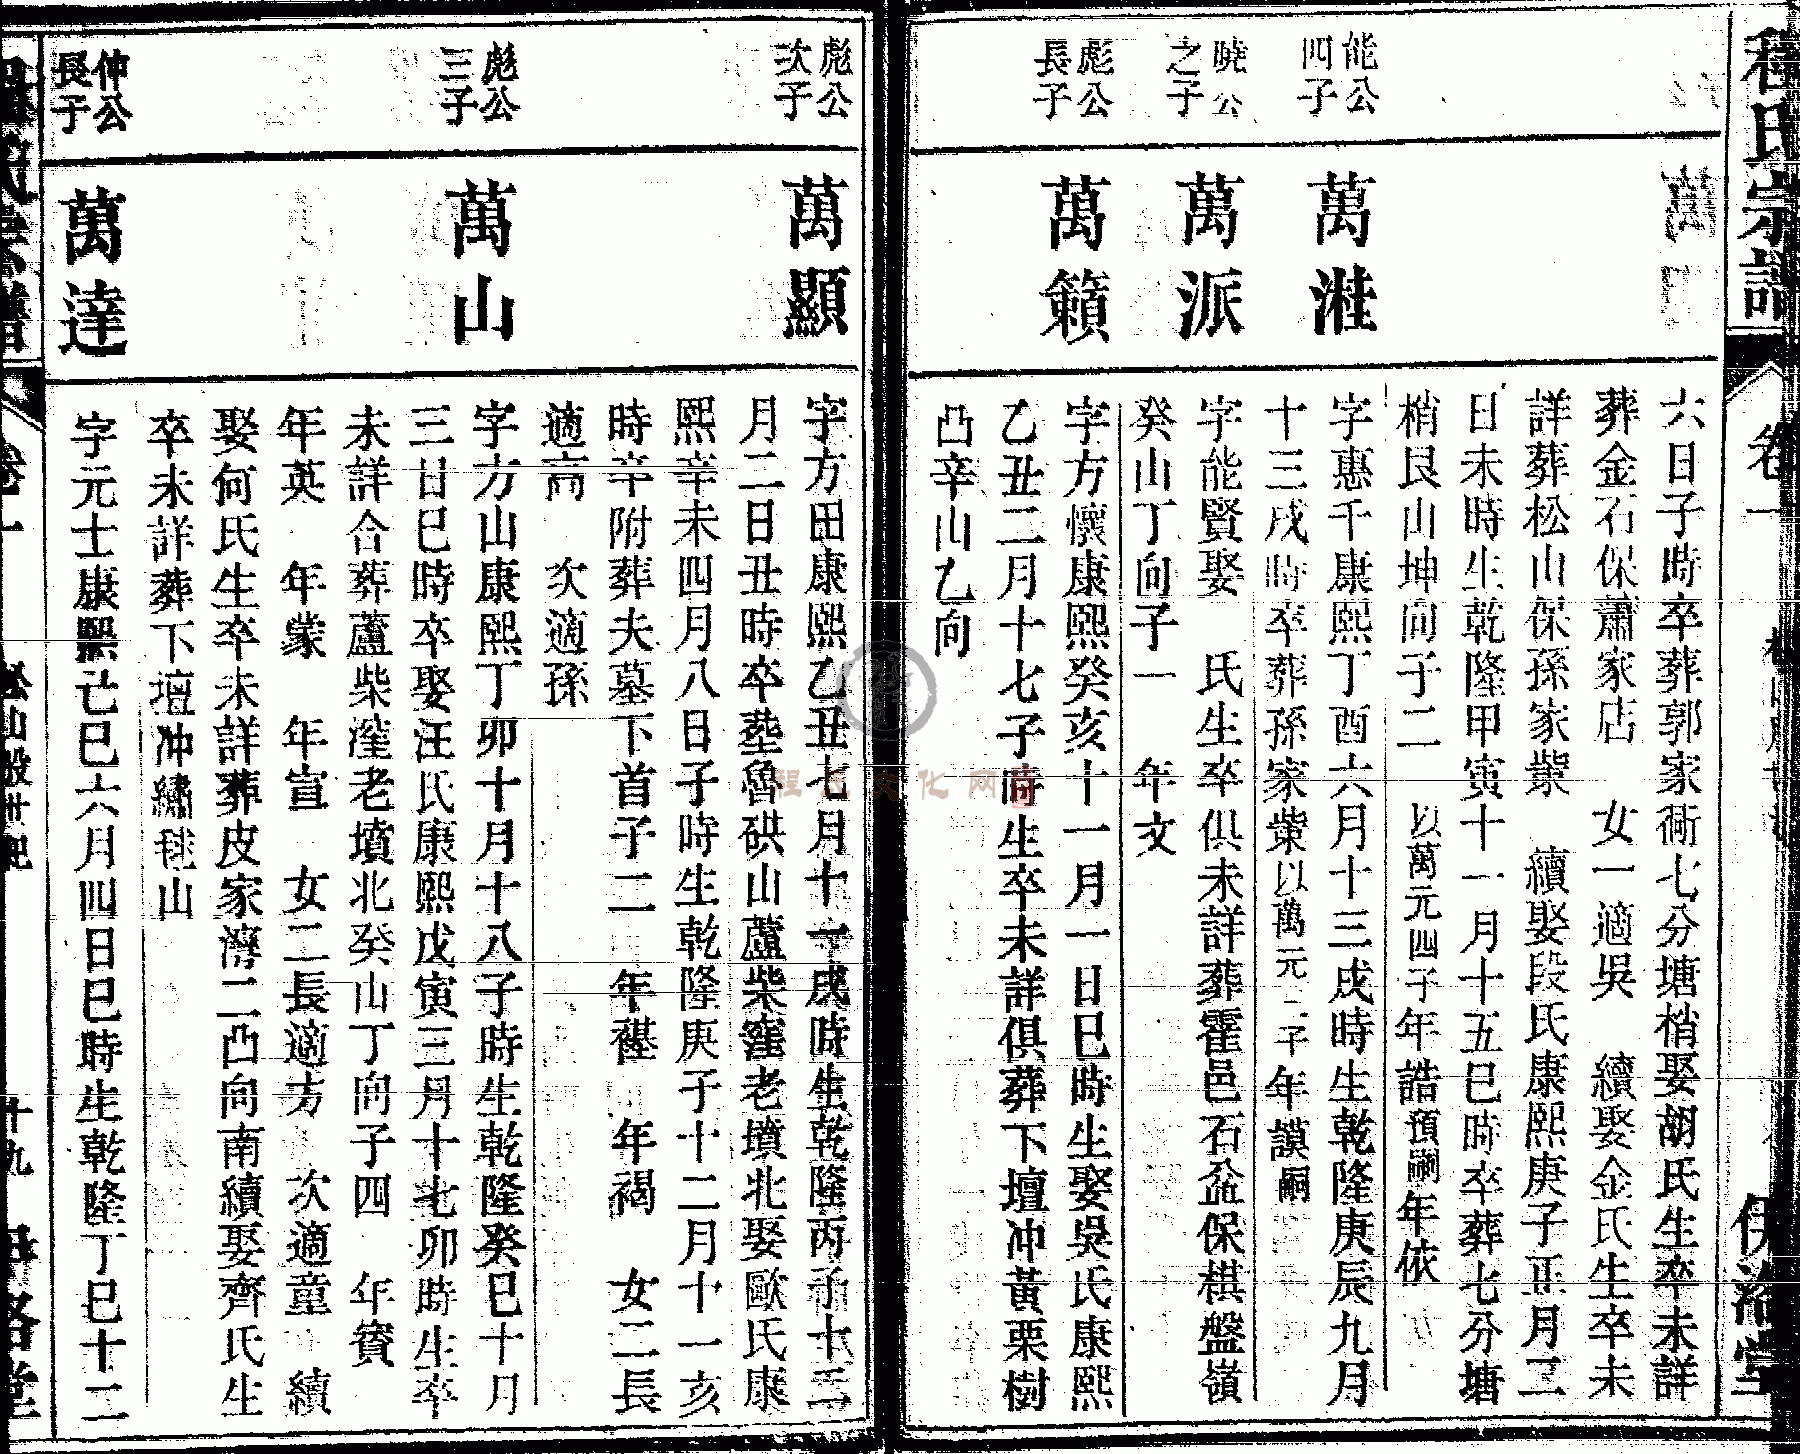 程氏宗譜
卷一
伊洛堂
六日子時卒葬郭家衝七分塘梢娶胡氏生卒未詳
葬金石保蕭家店 女一適吳 續娶金氏生卒未
詳葬松山保孫家紫 續娶段氏康熙庚子正月二
日未時生乾隆甲寅十一月十五巳時卒葬七分塘
梢艮山坤向子二 以萬元四子年誥預嗣年依
能公
四子
萬溎
字惠千康熙丁酉六月十三戌時生乾隆庚辰九月
十三戌時卒葬孫家紫以萬元二子年謨嗣
曉公
之子
萬派
字能賢娶 氏生卒俱未詳葬霍邑石盆保棋盤嶺
癸山丁向子一 年文
彪公
長子
萬籟
字方懷康熙癸亥十一月一日巳時生娶吳氏康熙
乙丑二月十七子時生卒未詳俱葬下壇冲黃栗樹
凸辛山乙向
彪公
次子
萬顯
字方田康熙乙丑七月十一戌時生乾隆丙子十二
月二日丑時卒塟魯硔山蘆柴窪老墳北娶歐氏康
熙辛未四月八日子時生乾隆庚子十二月十一亥
時卒附葬夫墓下首子二 年禥 年褐 女二長
適高 次適孫
彪公
三子
萬山
字方山康熙丁卯十月十八子時生乾隆癸巳十月
三廿巳時卒娶汪氏康熙戊寅三月十七卯時生卒
未詳合葬蘆柴漥老墳北癸山丁向子四 年賓
年英 年蒙 年宣 女二長適方 次適童 續
娶何氏生卒未詳葬皮家灣二凸向南續娶齊氏生
卒未詳葬下壇冲繡毬山
仲公
長子
萬達
字元士康熙己巳六月四日巳時生乾隆丁巳十二
松山股世紀
十九